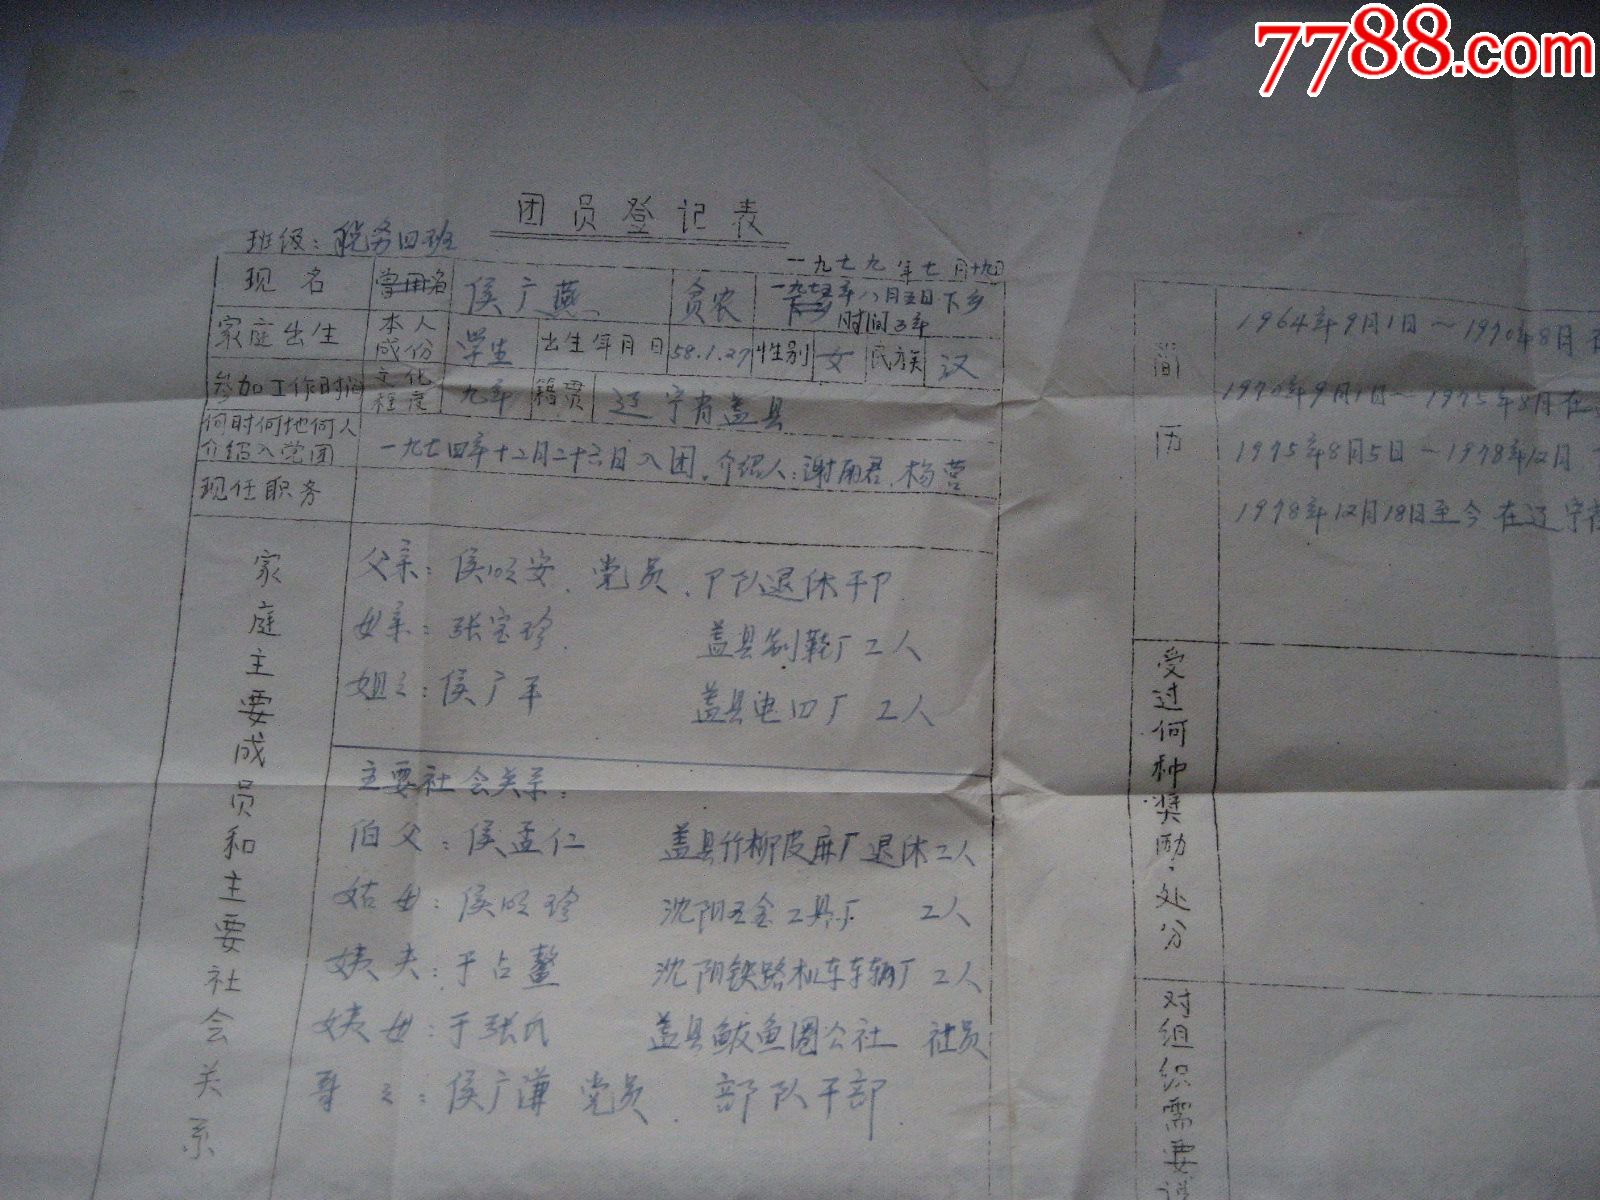 7788.com
团员登记表
班级：税务四班
一九七九年七月十九日
现名 曾用名 侯广燕 贫农 一九七五年八月五日下乡
时间3年
家庭出生 本人成份 学生 出生年月日 58.1.27 性别 女 民族 汉
参加工作时间 文化程度 九年 籍贯 辽宁省盖县
何时何地何人介绍入党团 一九七四年十二月二十六日入团．介绍人：谢雨君．杨营
现任职务
家庭主要成员和主要社会关系
父亲：侯明安．党员．卩队退休干卩
母亲：张宝珍．盖县制鞋厂工人
姐〻：侯广平 盖县电四厂 工人
主要社会关系：
伯父：侯孟仁 盖县竹柳皮麻厂退休工人
姑母：侯明珍 沈阳五金工具厂 工人
姨夫：于占鳌 沈阳铁路机车车辆厂 工人
姨母：于张氏 盖县鲅鱼圈公社 社员
哥〻：侯广谦 党员．部队干部
简历
1964年9月1日～1970年8月在
1970年9月1日～1975年8月在
1975年8月5日～1978年12月
1978年12月18日至今在辽宁省
受过何种奖励、处分
对组织需要